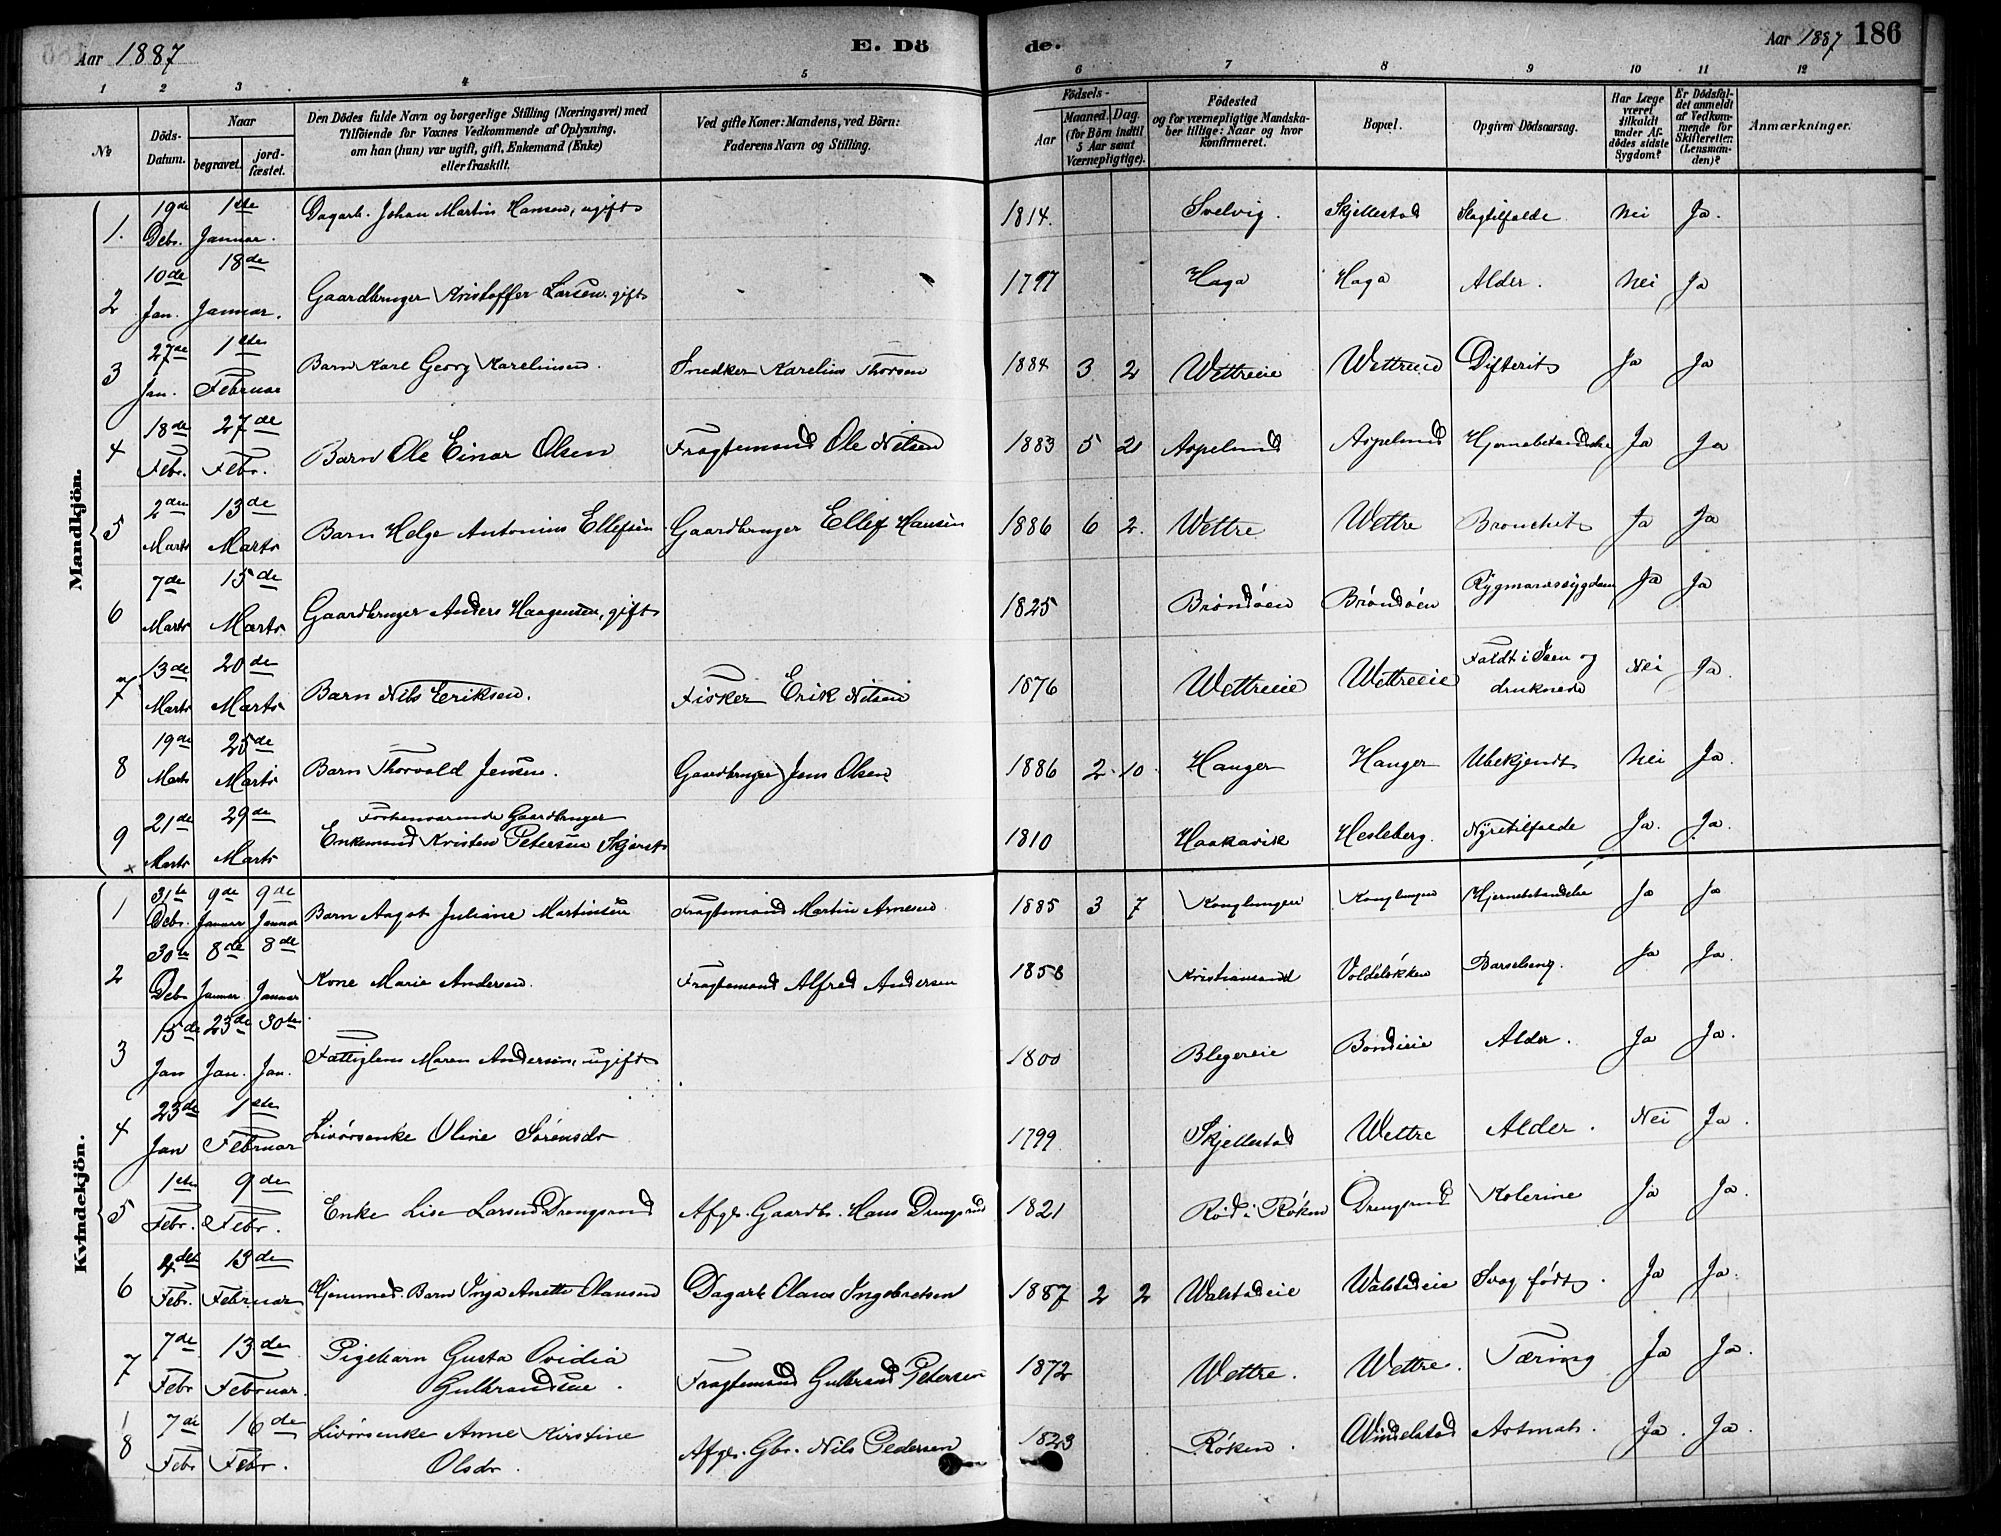 Aar 1887 E. Dö
de. Aar 1887 186
1 2 3 4 5 6 7 8 9 10 11 12
No
Döds-Datum.
Naar
begravet.
jordfæstet.
Den Dödes fulde Navn og borgerlige Stilling (Næringsvei) med
Tilföiende for Voxnes Vedkommende af Oplysning,
om han (hun) var ugift, gift, Enkemand (Enke)
eller fraskilt.
Ved gifte Koner: Mandens, ved Börn:
Faderens Navn og Stilling.
Födsels-
Aar
Maaned. Dag.
(for Börn indtil
5 Aar samt
Værnepligtige).
Födested
og for værnepligtige Mandskaber tillige: Naar og hvor
konfirmeret.
Bopæl.
Opgiven Dödsaarsag.
Har Læge
været
tilkaldt
under Afdödes sidste
Sygdom?
Er Dödsfaldet anmeldt
af Vedkommende for
Skifteretten
(Lensmanden)?
Anmærkninger.
Mandkjön.
1. 19de Debr. 1ste Januar. Dagarb. Johan Martin Hansen, ugift 1814. Svelvig. Skjellestad Slagtilfælde Nei Ja.
2 10de Jan. 18de Januar. Gaardbruger Kristoffer Larsen gift 1797 Haga Haga Alder. Nei Ja
3 27de Jan. 1ste Februar Barn Karl Georg Karelinsen. Snedker Karelius Thorsen 1884 3 2 Wettreeie Wettreeie Difterit Ja Ja
4 18de Febr. 27de Febr. Barn Ole Einar Olsen Fragtemand Ole Nilsen 1883 5 21 Aspelund Aspelund Hjernebetændelse Ja Ja
5 2den Marts 13de Marts Barn Helge Antonius Ellefsen Gaardbruger Ellef Hansen 1886 6 2. Wettre Wettre Bronchit Ja Ja
6 7de Marts 15de Marts Gaardbruger Anders Haagensen, gift 1825 Bröndöen Bröndöen Rygmarvssygdom Ja Ja
7 13de Marts 20de Marts Barn Nils Eriksen. Fisker Erik Nilsen 1876 Wettreeie Wettreeie Faldt i Søen og druknede Nei Ja
8 19de Marts 25de Marts Barn Thorvald Jensen. Gaardbruger Jens Olsen 1886 2. 10. Hanger Hanger Ubekjendt Nei Ja.
9 21de Marts 29de Marts Forhenværende Gaardbruger
Enkemand Kristen Petersen 1810 Haakavik Hesleberg. Nyretilfælde Ja. Ja.
Kvindekjön.
1 31te Debr. 9de Januar 9de Januar Barn Aagot Juliane Martinsen Fragtemand Martin Arnesen 1885 3 7 Konglungen Konglungen Hjernebetændelse Ja Ja
2 30te Debr 8de Januar 8de Januar Kone Marie Andersen. Fragtemand Alfred Andersen 1858 Kristiansand Voldelökken Barselseng. Ja Ja.
3 15de Jan 23de Jan. 30te Jan. Fattiglem Maren Andersen, ugift 1800 Blegereie Bondieie Alder. Ja Ja.
4 23de Jan 1ste Februar Livörsenke Oline Sörensdr 1799 Skjellestad Wettre Alder. Nei Ja.
5 1ste Febr. 9de Febr. Enke Lise Larsen Drengsrud Afgl. Gaardb. Hans Drengsrud 1821 Röd i Röken Drengsrud Kolerine Ja Ja.
6 4de Febr. 13de Februar Hjemmed. Barn Inga Anette Olausen Dagarb Olaus Ingebretsen 1887 2 2 Walstadeie Walstadeie Svag född. Ja Ja.
7 7de Febr 13de Februar. Pigebarn Gusta Ovidia
Gulbrandsen. Fragtemand Gulbrand Petersen 1872 Wettre. Wettre. Tæring Ja Ja.
8 7de Febr 16de Febr. Livörsenke Anne Kirstine
Olsdr. Afgl. Gbr. Nils Pedersen 1823 Röken. Windelstad Astmat. Ja. Ja.